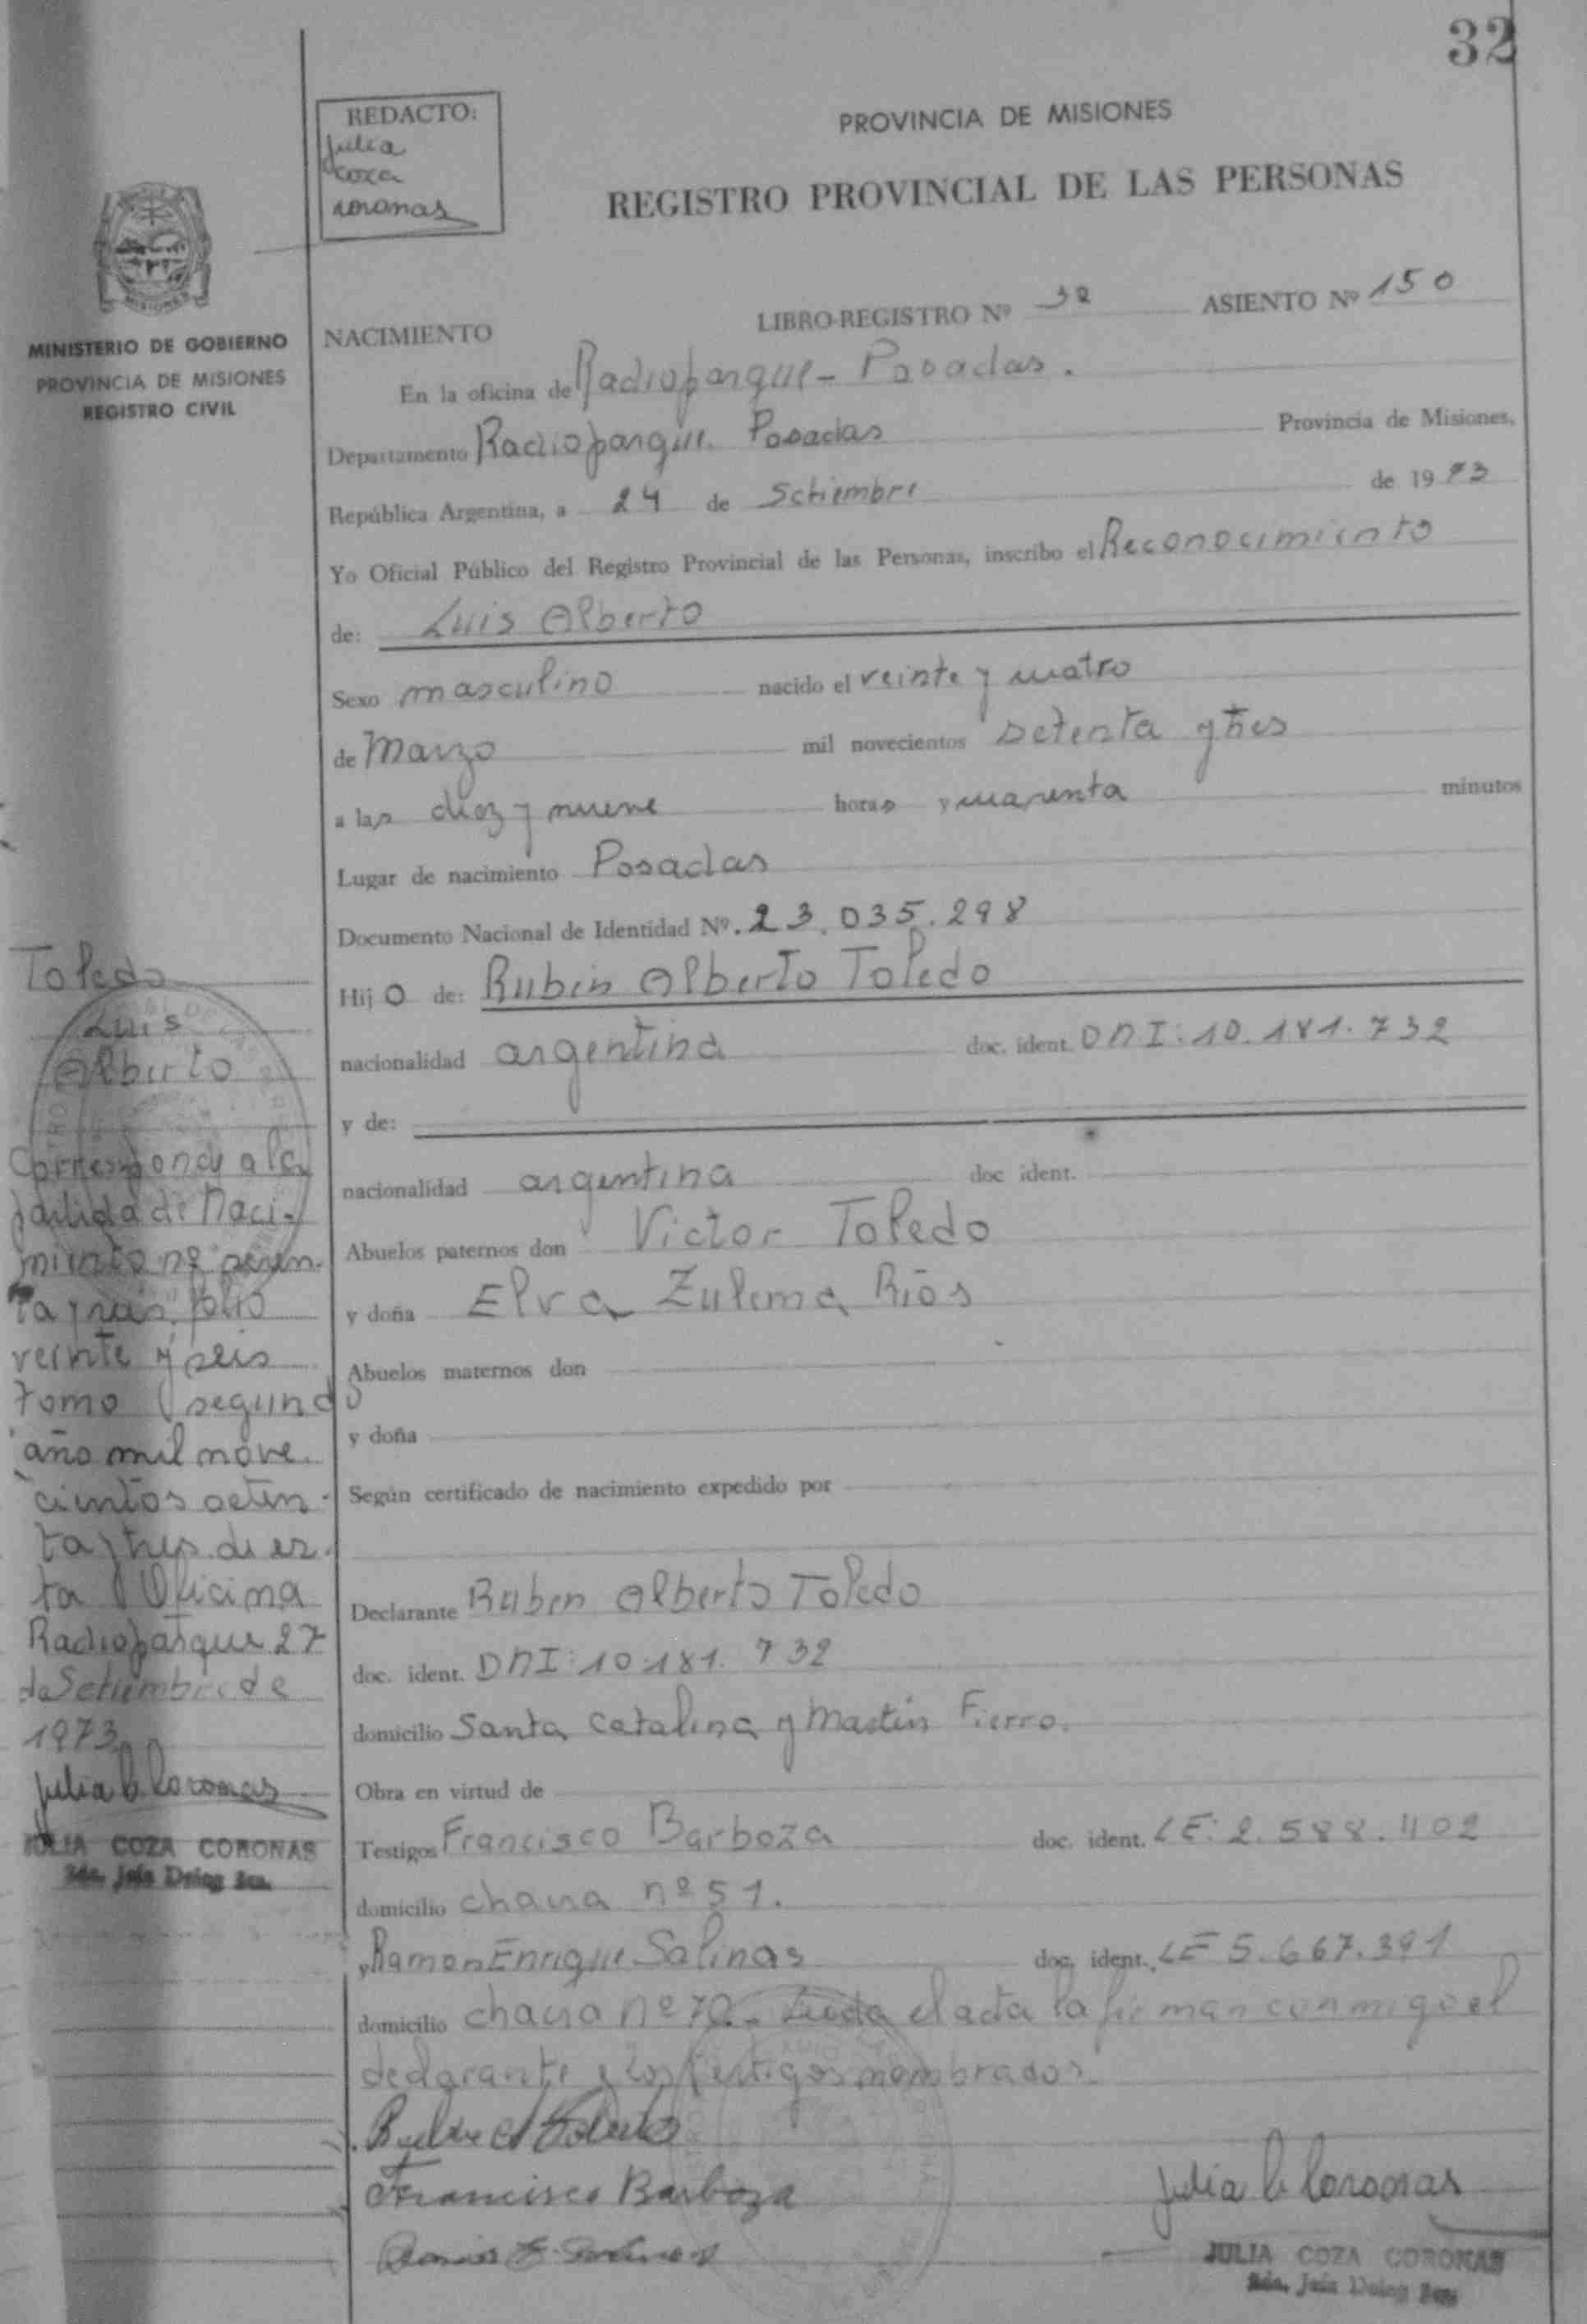 32
REDACTO:
Julia
coza
coronas
PROVINCIA DE MISIONES
REGISTRO PROVINCIAL DE LAS PERSONAS
MISIONES
MINISTERIO DE GOBIERNO
PROVINCIA DE MISIONES
REGISTRO CIVIL
NACIMIENTO
LIBRO-REGISTRO Nº 32 ASIENTO Nº 150
En la oficina de Radioparque - Posadas.
Departamento Radioparque. Posadas Provincia de Misiones,
República Argentina, a 24 de Setiembre de 1973
Yo Oficial Público del Registro Provincial de las Personas, inscribo el Reconocimiento
de: Luis Alberto
Sexo masculino nacido el veinte y cuatro
de Marzo mil novecientos setenta y tres
a las diez y nueve horas y cuarenta minutos
Lugar de nacimiento Posadas
Documento Nacional de Identidad Nº. 23.035.298
Hijo de: Ruben Alberto Toledo
nacionalidad argentina doc. ident. DNI: 10.181.732
y de:
nacionalidad argentina doc ident.
Abuelos paternos don Victor Toledo
y doña Elva Zulema Ríos
Abuelos maternos don
y doña
Según certificado de nacimiento expedido por
Declarante Ruben Alberto Toledo
doc. ident. DNI: 10.181.732
domicilio Santa Catalina y Martín Fierro.
Obra en virtud de
Testigos Francisco Barboza doc. ident. LE: 2.588.402
domicilio chacra nº 51.
y Ramon Enrique Salinas doc. ident. LE 5.667.391
domicilio chacra nº 70. - Leida el acta la firman conmigo el
declarante y los testigos nombrados.
Francisco Barboza
Julia C. Coronas
JULIA COZA CORONAS
Toledo
Luis
Alberto
Corresponde a la
partida de Naci-
miento nº sesen-
ta y seis, folio
veinte y seis
tomo segundo
año mil nove-
cientos seten-
ta y tres de es-
ta Oficina
Radioparque 27
de Setiembre de
1973
Julia C. Coronas
JULIA COZA CORONAS